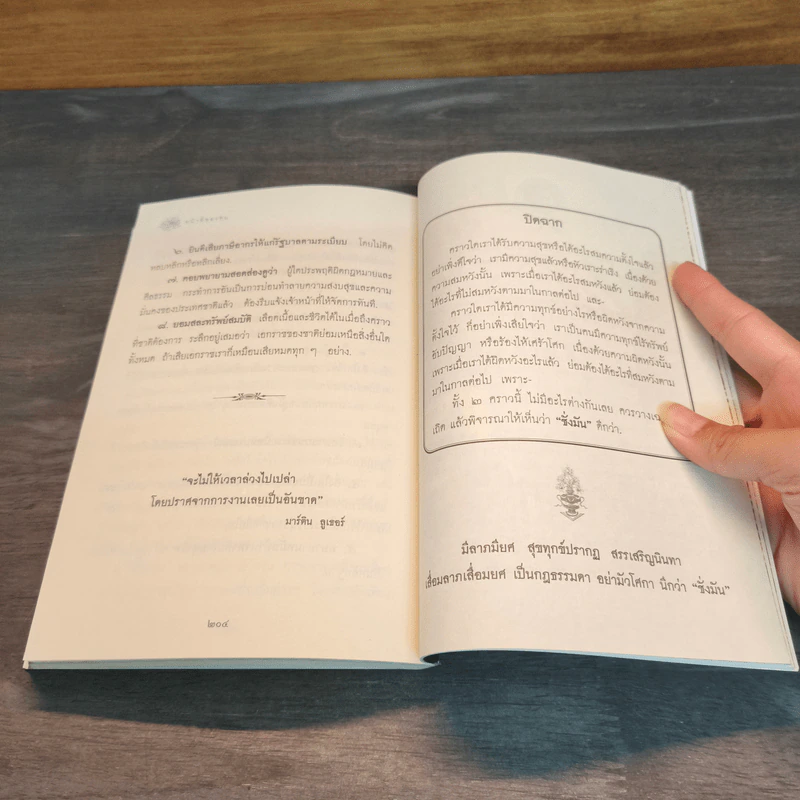 ๖. ยินดีเสียภาษีอากรให้แก่รัฐบาลตามธรรมเนียม โดยไม่คิด
หลบหลีกหรือหลีกเลี่ยง.
๗. คอยพยายามสอดส่องดูว่า ผู้ใดประพฤติผิดกฎหมายและ
ศีลธรรม กระทำการอันเป็นการบ่อนทำลายความสงบสุขและความ
มั่นคงของประเทศชาติแล้ว ต้องรีบแจ้งเจ้าหน้าที่ให้จัดการทันที.
๘. ยอมสละทรัพย์สมบัติ เลือดเนื้อและชีวิตได้ในเมื่อถึงคราว
ที่ชาติต้องการ ระลึกอยู่เสมอว่า เอกราชของชาติย่อมเหนือสิ่งอื่นใด
ทั้งหมด ถ้าเสียเอกราชเราก็เหมือนเสียหมดทุก ๆ อย่าง.
"จะไม่ให้เวลาล่วงไปเปล่า
โดยปราศจากการงานเลยเป็นอันขาด"
มาร์ติน ลูเธอร์
๒๐๔
ปิดฉาก
คราวใดเราได้รับความสุขหรือได้อะไรสมความตั้งใจแล้ว
อย่าเพิ่งดีใจว่า เรามีความสุขแล้วหรือหัวเราะร่าเริง เนื่องด้วย
ความสมหวังนั้น เพราะเมื่อเราได้อะไรสมหวังแล้ว ย่อมต้อง
ได้อะไรที่ไม่สมหวังตามมาในกาลต่อไป และ-
คราวใดเราได้มีความทุกข์อย่างไรหรือผิดหวังจากความ
ตั้งใจไว้ ก็อย่าเพิ่งเสียใจว่า เราเป็นคนมีความทุกข์ไร้ทรัพย์
อับปัญญา หรือร้องไห้เศร้าโศก เนื่องด้วยความผิดหวังนั้น
เพราะเมื่อเราได้ผิดหวังอะไรแล้ว ย่อมต้องได้อะไรที่สมหวังตาม
มาในกาลต่อไป เพราะ-
ทั้ง ๒ คราวนี้ ไม่มีอะไรต่างกันเลย ควรวางเฉย
เถิด แล้วพิจารณาให้เห็นว่า "ชั่งมัน" ดีกว่า.
มีลาภมียศ สุขทุกข์ปรากฏ สรรเสริญนินทา
เสื่อมลาภเสื่อมยศ เป็นกฎธรรมดา อย่ามัวโศกา นึกว่า "ชั่งมัน"